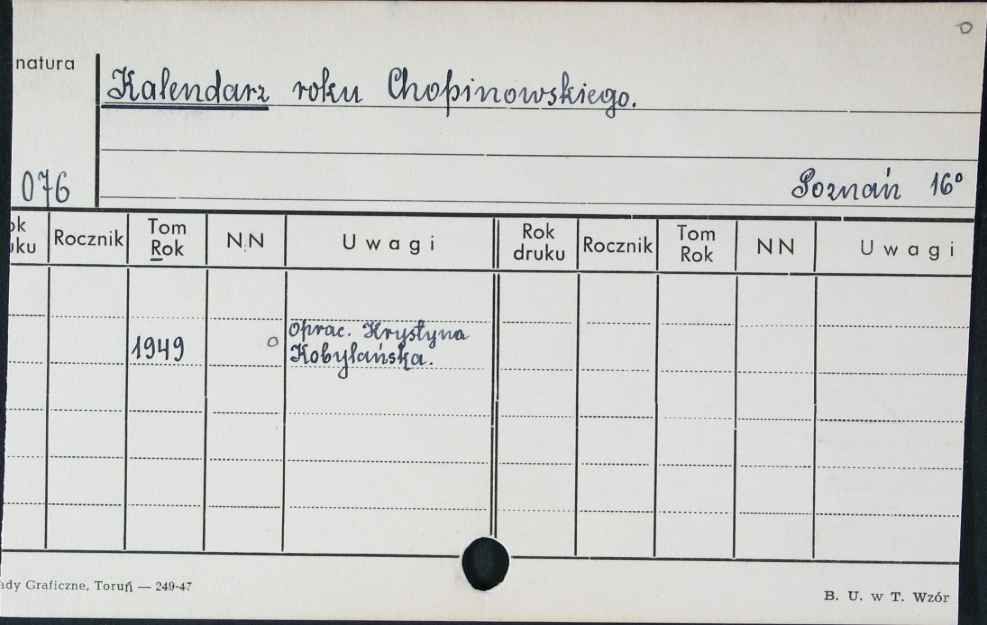 natura
Kalendarz roku Chopinowskiego.
076
Poznań 16°
ok Rocznik Tom N.N Uwagi Rok Rocznik Tom NN Uwagi
uku Rok druku Rok
1949 o Oprac. Krystyna
Kobylańska.
ady Graficzne, Toruń — 249-47
B. U. w T. Wzór